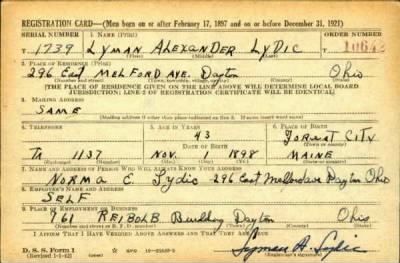 REGISTRATION CARD—(Men born on or after February 17, 1897 and on or before December 31, 1921)
SERIAL NUMBER 1. NAME (Print) ORDER NUMBER
T 1739 LYMAN ALEXANDER LYDIC
(First) (Middle) (Last)
2. PLACE OF RESIDENCE (Print)
296 East MELFORD AVE. Dayton Ohio
(THE PLACE OF RESIDENCE GIVEN ON THE LINE ABOVE WILL DETERMINE LOCAL BOARD
JURISDICTION; LINE 2 OF REGISTRATION CERTIFICATE WILL BE IDENTICAL)
3. MAILING ADDRESS
SAME
(Mailing address if other than place indicated on line 2. If same insert word same)
4. TELEPHONE 5. AGE IN YEARS 6. PLACE OF BIRTH
43 FOREST CITY
DATE OF BIRTH
1137 NOV. 1 1898 MAINE
(Exchange) (Number) (Mo.) (Day) (Yr.) (State or country)
7. NAME AND ADDRESS OF PERSON WHO WILL ALWAYS KNOW YOUR ADDRESS
NORMA E. Lydic 296 East Dayton Ohio
8. EMPLOYER'S NAME AND ADDRESS
SELF
9. PLACE OF EMPLOYMENT OR BUSINESS
761 REIBOLD Building Dayton Ohio
I AFFIRM THAT I HAVE VERIFIED ABOVE ANSWERS AND THAT THEY ARE TRUE.
D. S. S. Form 1
(Revised 1-1-42)
Lyman A. Lydic
(Registrant's signature)